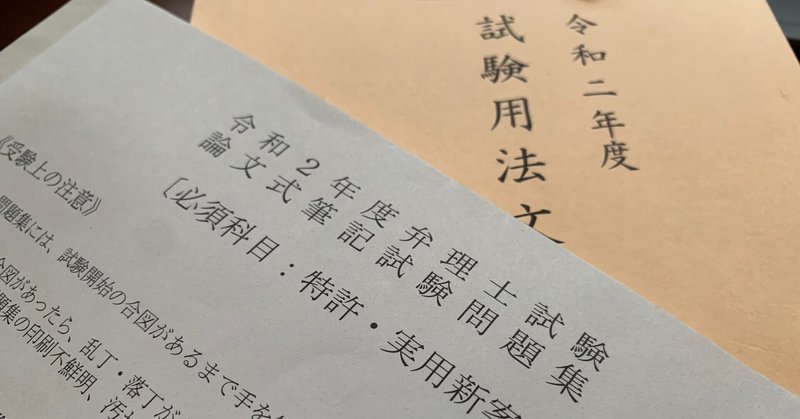 令和二年度
試験用法文
令和2年度弁理士試験
論文式筆記試験問題集
〔必須科目：特許・実用新案
《受験上の注意》
問題集には、試験開始の合図があるまで手を
合図があったら、乱丁・落丁が
題集の印刷不鮮明、汚